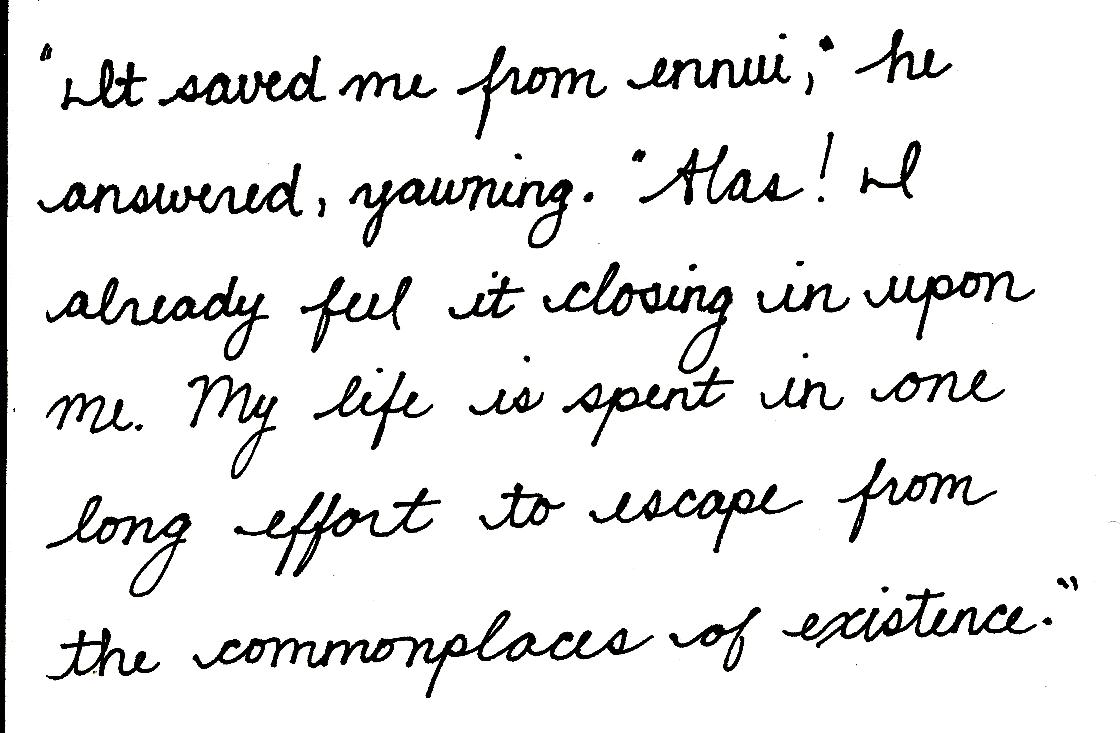 "It saved me from ennui," he
answered, yawning. "Alas! I
already feel it closing in upon
me. My life is spent in one
long effort to escape from
the commonplaces of existence."